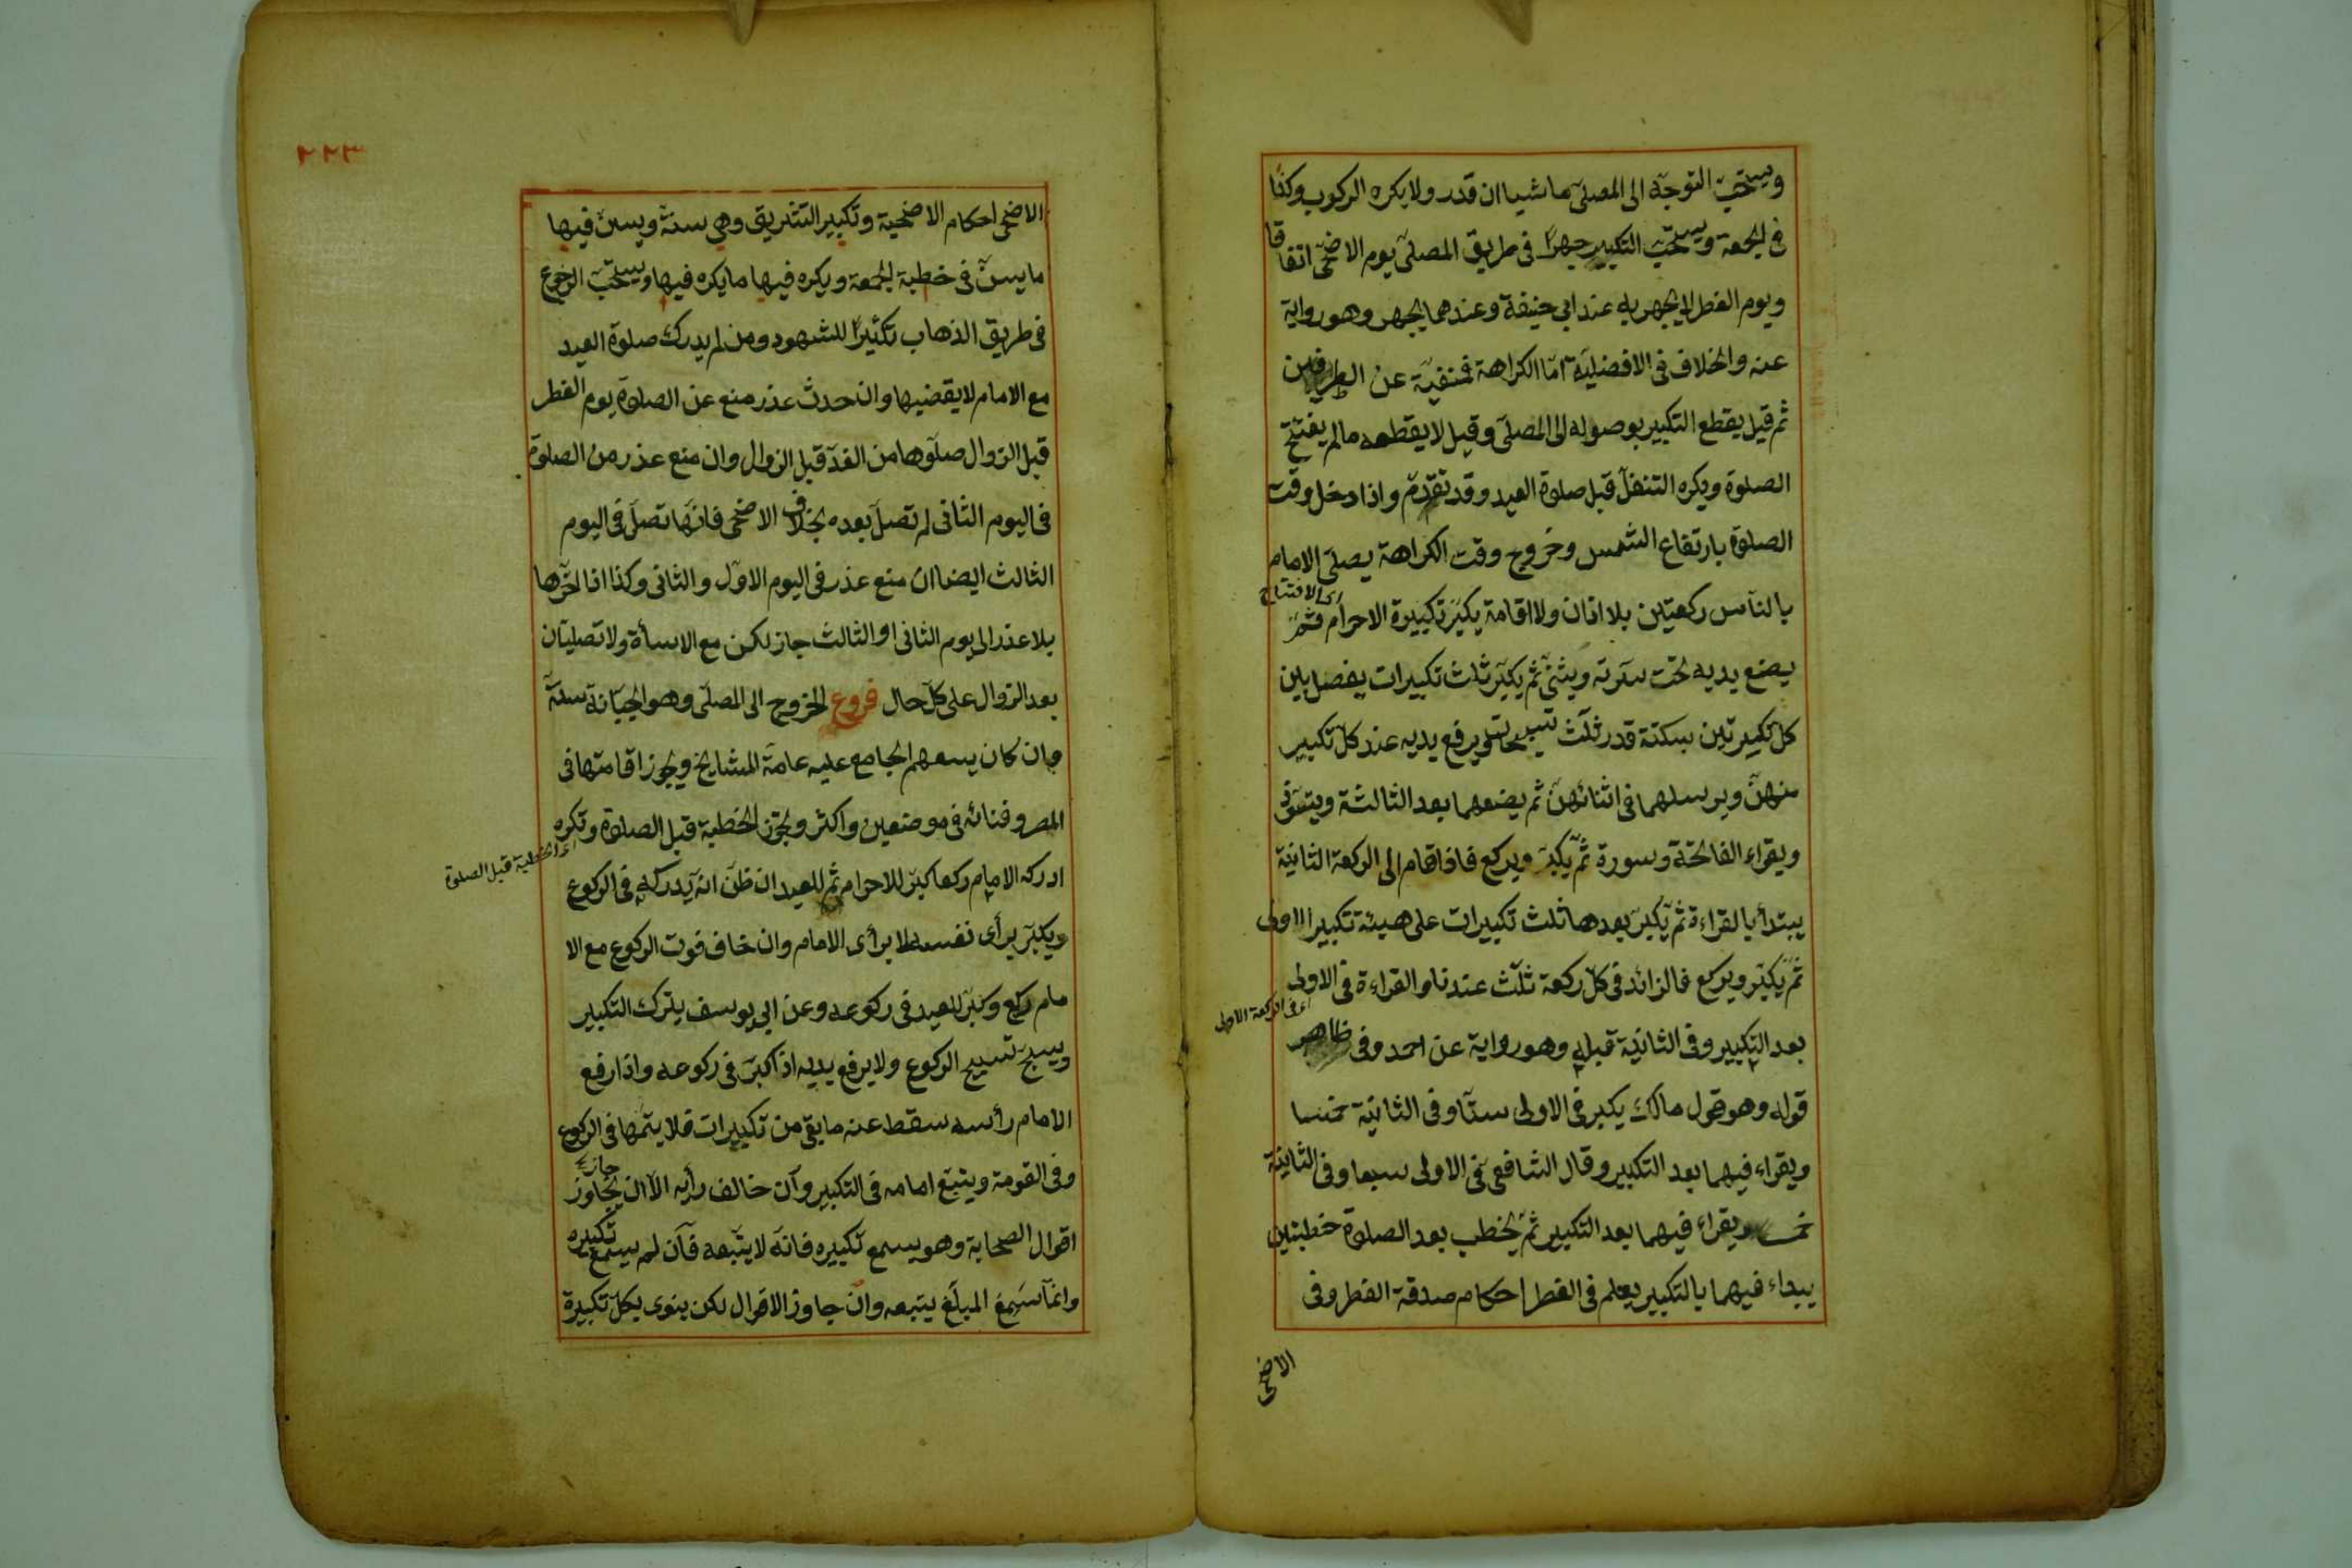 ويستحبّ التوجّه الى المصلّى ماشيا ان قدر ولا يكره الركوب وكذا
فى الجمعة ويستحبّ التكبير جهرًا فى طريق المصلّى يوم الاضحى اتفاقا
ويوم الفطر لا يجهر به عند ابى حنيفة وعندهما يجهر وهو رواية
عنه والخلاف فى الافضليّة امّا الكراهة فمنفيّة عن الطرفين
ثم قيل يقطع التكبير بوصوله الى المصلّى وقيل لا يقطعه مالم يفتتح
الصلوة ويكره التنفّل قبل صلوة العيد وقد تقدّم واذا دخل وقت
الصلوة بارتفاع الشمس وخروج وقت الكراهة يصلّى الامام
بالنّاس ركعتين بلا اذان ولا اقامة يكبّر تكبيرة الاحرام ثمّ
اى الافتتاح
يضع يديه تحت سرّته ويثنّى ثم يكبّر ثلث تكبيرات يفصل بين
كلّ تكبيرتين بسكتة قدر ثلث تسبيحات ويرفع يديه عند كلّ تكبير
منهنّ ويرسلهما فى اثنائهنّ ثم يضعهما بعد الثالثة ويتعوّذ
ويقراء الفاتحة وسورة ثمّ يكبّر ويركع فاذا قام الى الركعة الثانية
يبتدأ بالقراءة ثم يكبّر بعدها ثلث تكبيرات على هيئة تكبير الاولى
ثمّ يكبّر ويركع فالزائد فى كلّ ركعة ثلث عندنا والقراءة فى الاولى
اى فى الركعة الاولى
بعد التكبير وفى الثانية قبله وهو رواية عن احمد وفى ظاهر
قوله وهو قول مالك يكبر فى الاولى ستّا وفى الثانية خمسا
ويقراء فيهما بعد التكبير وقال الشافعى فى الاولى سبعا وفى الثانية
خمسا ويقراء فيهما بعد التكبير ثمّ يخطب بعد الصلوة خطبتين
يبداء فيهما بالتكبير يعلم فى الفطر احكام صدقة الفطر وفى
الاضحى
٢٢٣
الاضحى احكام الاضحية وتكبير التشريق وهى سنة ويسنّ فيها
ما يسنّ فى خطبة الجمعة ويكره فيها ما يكره فيها ويستحبّ الرجوع
فى طريق الذهاب تكثيرًا للشهود ومن لم يدرك صلوة العيد
مع الامام لا يقضيها وان حدث عذر منع عن الصلوة يوم الفطر
قبل الزوال صلّوها من الغد قبل الزوال وان منع عذر من الصلوة
فى اليوم الثانى لم تصلّ بعده بخلاف الاضحى فانّها تصلّ فى اليوم
الثالث ايضا ان منع عذر فى اليوم الاوّل والثانى وكذا اذا اخّرها
بلا عذر الى يوم الثانى او الثالث جاز لكن مع الاسأة ولا تصليان
بعد الزوال على كلّ حال فروع الخروج الى المصلّى وهو الجبّانة سنّة
وان كان يسعهم الجامع عليه عامّة المشايخ ويجوز اقامتها فى
المصر وفنائه فى موضعين واكثر وتجوز الخطبة قبل الصلوة وتكره
اى الخطبة قبل الصلوة
ادركه الامام ركعا كبّر للاحرام ثم للعيد ان ظنّ انّه يدركه فى الركوع
ويكبّر برأى نفسه لا برأى الامام وان خاف فوت الركوع مع الا
مام ركع وكبّر للعيد فى ركوعه وعن ابى يوسف يترك التكبير
ويسبح تسبيح الركوع ولا يرفع يديه اذا كبّر فى ركوعه واذا رفع
الامام رأسه سقط عنه ما بقى من تكبيرات فلا يتمّها فى الركوع
وفى القومة ويتبع امامه فى التكبير وان خالف رأيه الّا ان يجاوز
اقوال الصحابة وهو يسمع تكبيره فانّه لا يتّبعه فان لم يسمع تكبيره
وانّما سمع المبلّغ يتبعه وان جاوز الاقوال لكن ينوى بكلّ تكبيرة